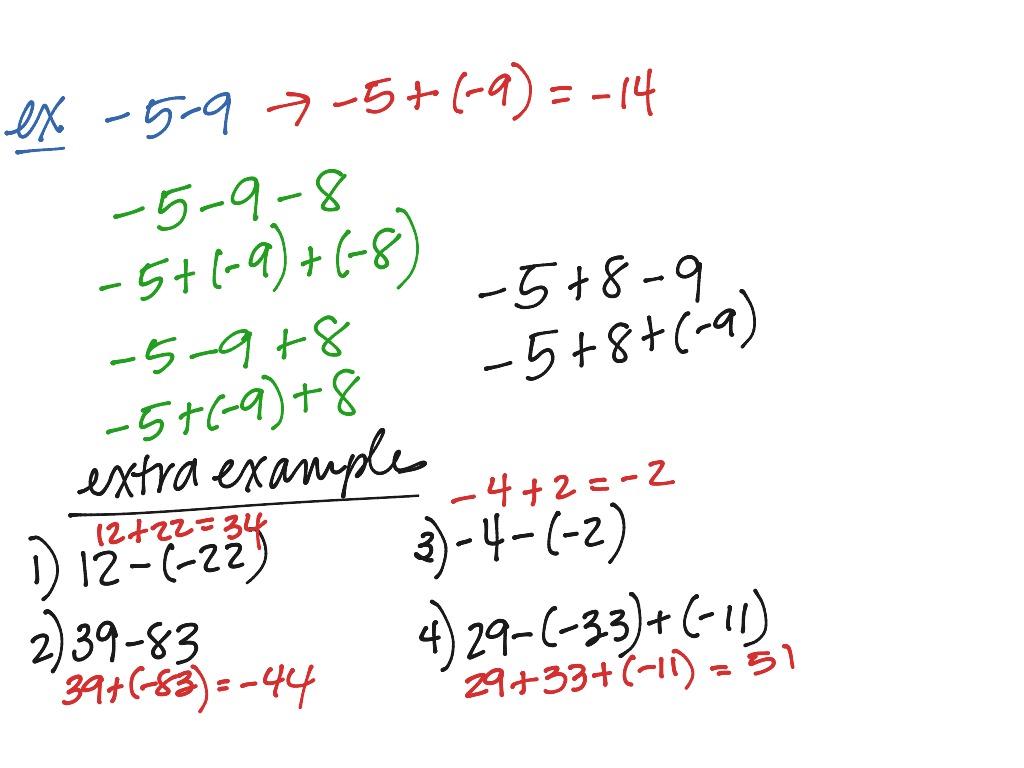 ex -5-9 → -5+(-9) = -14
-5-9-8
-5+(-9)+(-8)
-5-9+8
-5+(-9)+8
-5+8-9
-5+8+(-9)
extra example
12+22=34
1) 12-(-22)
2) 39-83
39+(-83)=-44
-4+2=-2
3) -4-(-2)
4) 29-(-33)+(-11)
29+33+(-11) = 51